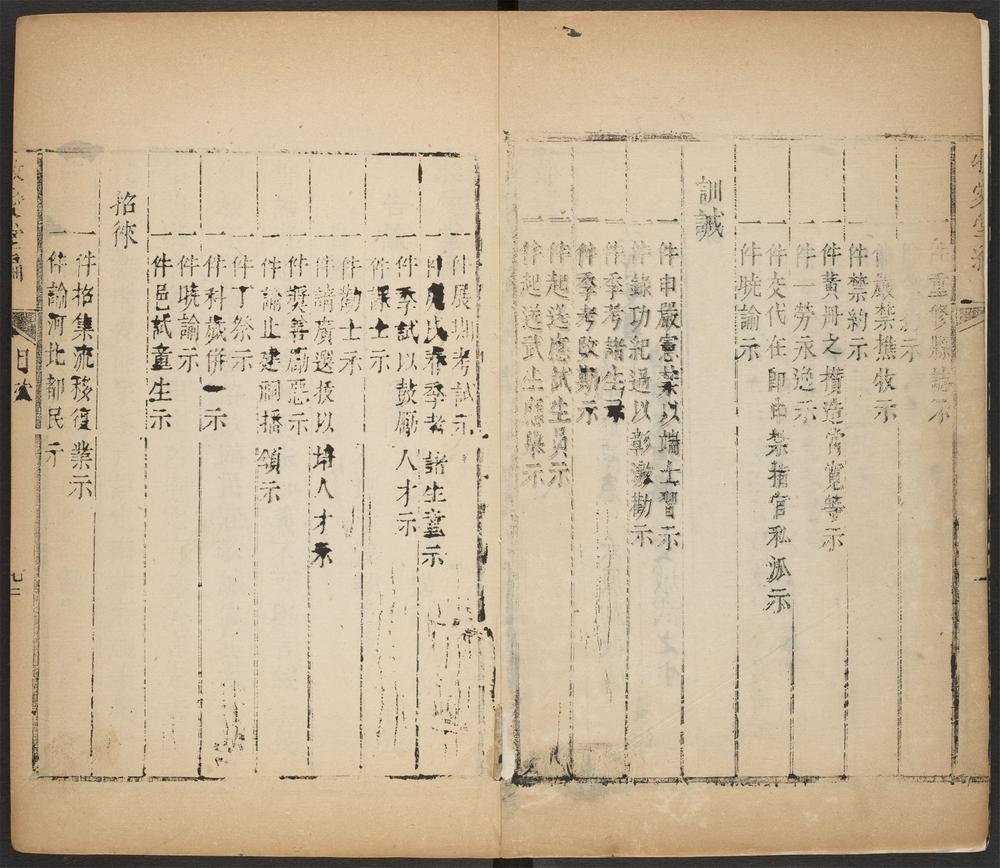 一件重修縣誌示
示
嚴禁撫牧示
一件禁約示
一件黃冊之攢造當寬等示
一件一勞永逸示
一件交代在即由禁指官私派示
一件曉諭示
訓誡
一件申嚴憲禁以端士習示
一件錄功紀過以彰激勸示
一件季考諸生示
一件季考改期示
一件起送應試生員示
一件起送武生應舉示
一件展期考試示
一件 民春季考諸生童示
一件季試以鼓厲人才示
一件課士示
一件勸士示
一件請廣選拔以培人才示
一件獎善勵惡示
一件諭止建祠播頌示
一件丁祭示
一件科歲併一示
一件曉諭示
一件邑試童生示
招徠
一件招集流移復業示
一件諭河北都民示
目次